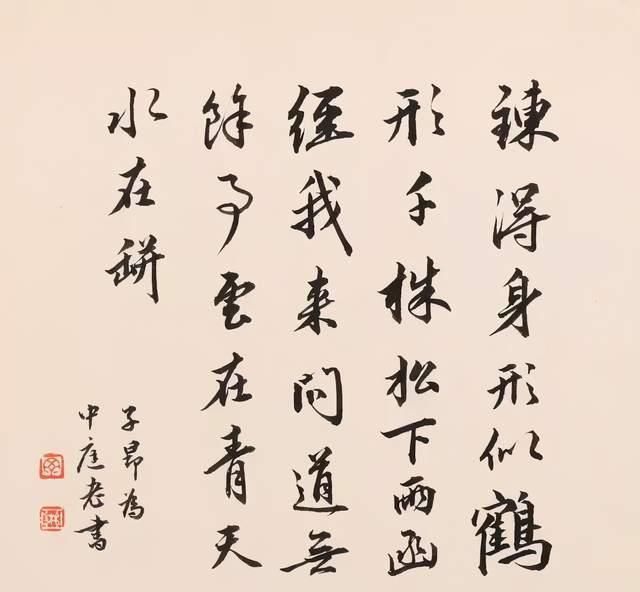 鍊得身形似鶴
形千株松下兩函
經我来問道無
餘事雲在青天
水在缾
子昂為
中庭老書